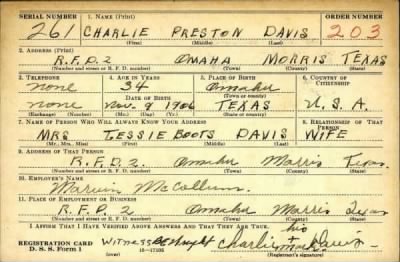 SERIAL NUMBER 1. NAME (Print) ORDER NUMBER
261 CHARLIE PRESTON DAVIS 203
(First) (Middle) (Last)
2. ADDRESS (Print)
R.F.D. 2 OMAHA MORRIS TEXAS
(Number and street or R. F. D. number) (Town) (County) (State)
3. TELEPHONE 4. AGE IN YEARS 5. PLACE OF BIRTH 6. COUNTRY OF CITIZENSHIP
none 34 Omaha
DATE OF BIRTH (Town or county)
none Nov. 9 1906 TEXAS U.S.A.
(Exchange) (Number) (Mo.) (Day) (Yr.) (State or country)
7. NAME OF PERSON WHO WILL ALWAYS KNOW YOUR ADDRESS 8. RELATIONSHIP OF THAT PERSON
MRS TESSIE BOOTS DAVIS WIFE
(Mr., Mrs., Miss) (First) (Middle) (Last)
9. ADDRESS OF THAT PERSON
R.F.D. 2. Omaha Morris Texas
(Number and street or R. F. D. number) (Town) (County) (State)
10. EMPLOYER'S NAME
Marvin McCollum.
11. PLACE OF EMPLOYMENT OR BUSINESS
R.F.D. 2 Omaha Morris Texas
(Number and street or R. F. D. number) (Town) (County) (State)
I AFFIRM THAT I HAVE VERIFIED ABOVE ANSWERS AND THAT THEY ARE TRUE.
his
REGISTRATION CARD Witness Charlie + Davis
D. S. S. Form 1 16—17105 mark (Registrant's signature)